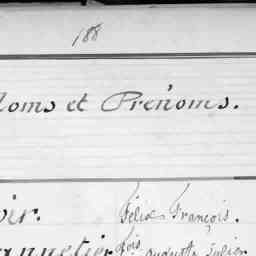 188
Noms et Prénoms.
oir. Félix François.
annetier fois Auguste Julien